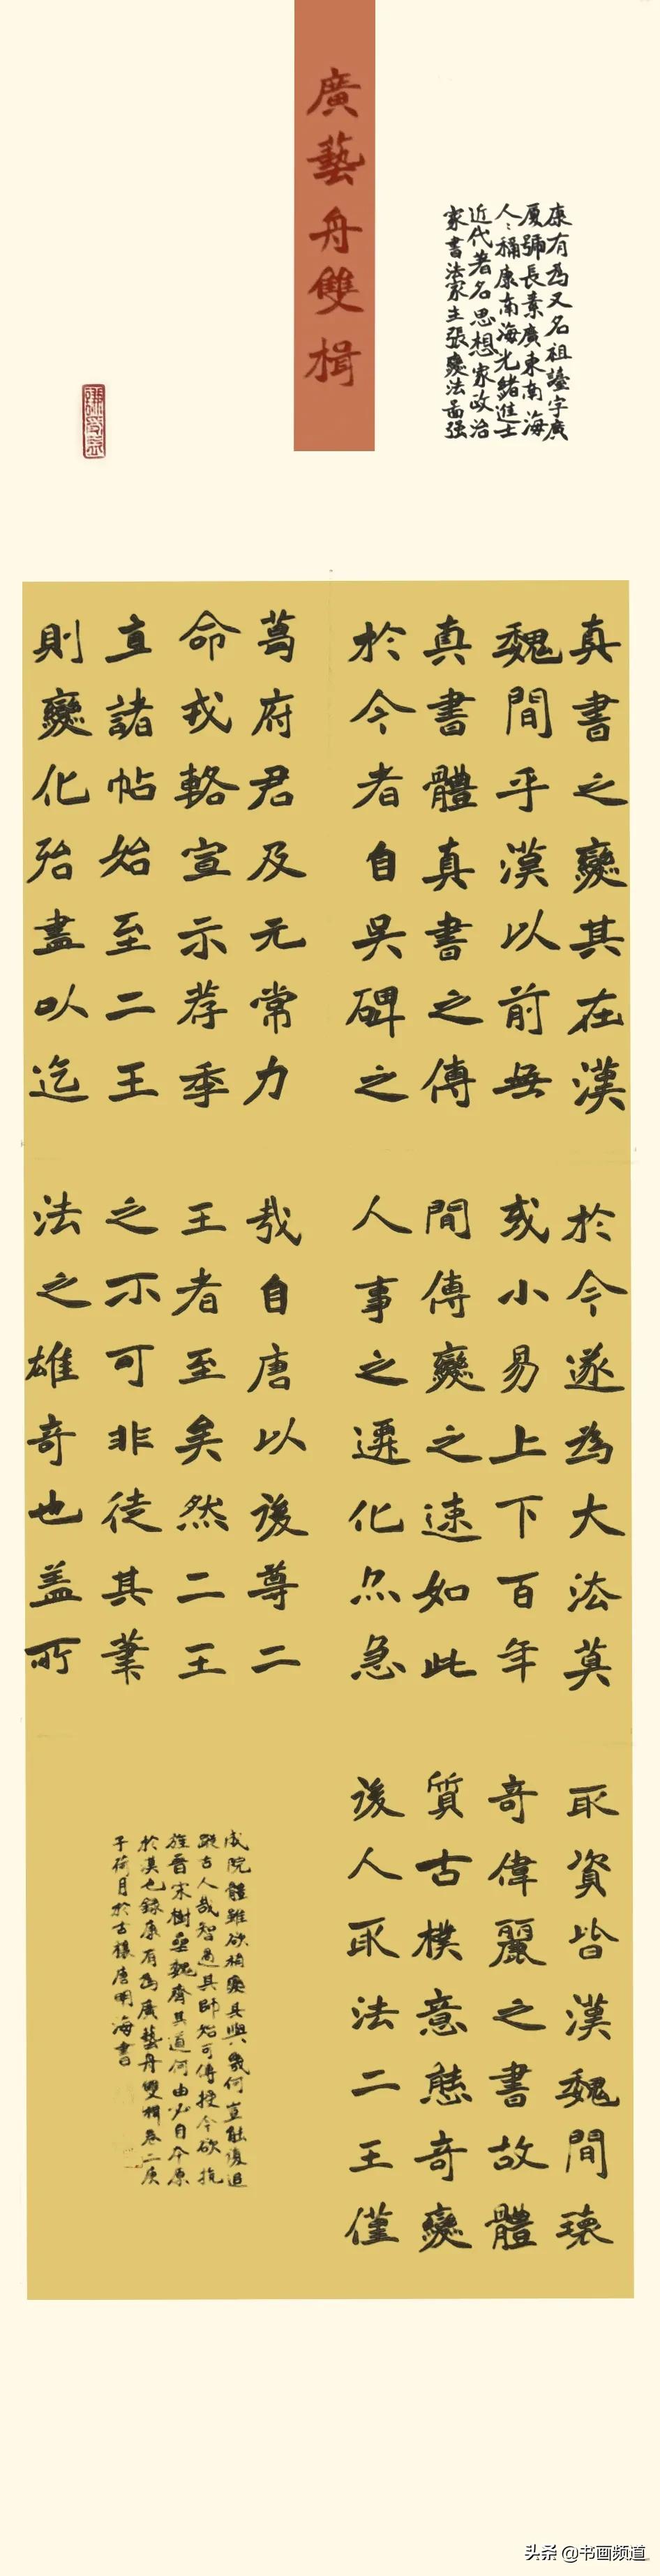 廣藝舟雙楫
康有為又名祖詒字廣
廈號長素廣東南海
人〻稱康南海光緒進士
近代著名思想家政治
家書法家主張變法啚强
真書之變其在漢
魏間乎漢以前無
真書體真書之傳
於今者自吳碑之
葛府君及元常力
命戎輅宣示荐季
直諸帖始至二王
則變化殆盡以迄
於今遂為大法莫
或小易上下百年
間傳變之速如此
人事之遷化亦急
哉自唐以後尊二
王者至矣然二王
之不可非徒其筆
法之雄奇也盖所
取資皆漢魏間瓌
奇偉麗之書故體
質古樸意態奇變
後人取法二王僅
成院體雖欲稍變其與幾何豈能復追
蹤古人哉智過其師始可傳授今欲抗
旌晋宋樹壘魏齊其道何由必自本原
於漢也録康有為廣藝舟雙楫卷二庚
子荷月於古穰唐明海書
头条 @书画频道